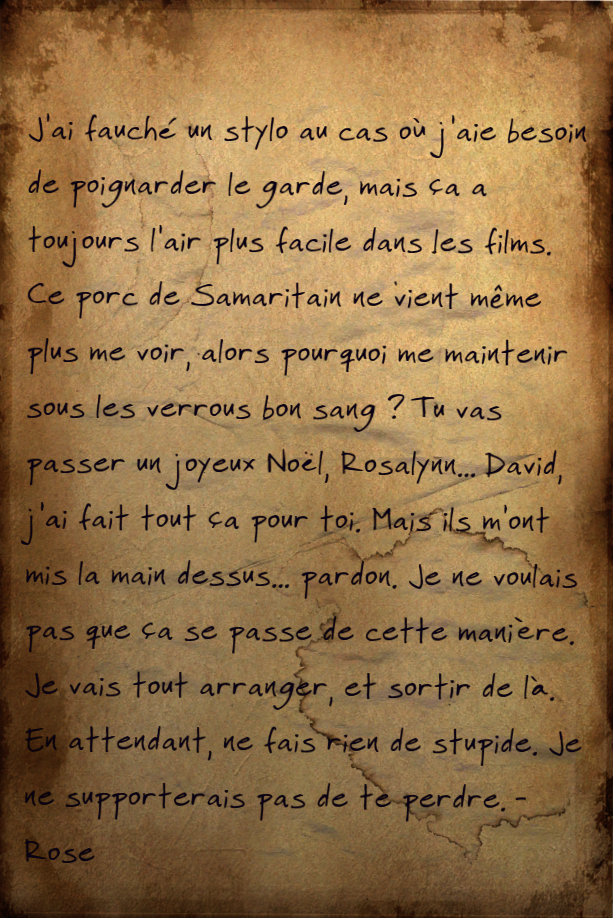 J'ai fauché un stylo au cas où j'aie besoin
de poignarder le garde, mais ça a
toujours l'air plus facile dans les films.
Ce porc de Samaritain ne vient même
plus me voir, alors pourquoi me maintenir
sous les verrous bon sang ? Tu vas
passer un joyeux Noël, Rosalynn... David,
j'ai fait tout ça pour toi. Mais ils m'ont
mis la main dessus... pardon. Je ne voulais
pas que ça se passe de cette manière.
Je vais tout arranger, et sortir de là.
En attendant, ne fais rien de stupide. Je
ne supporterais pas de te perdre. -
Rose